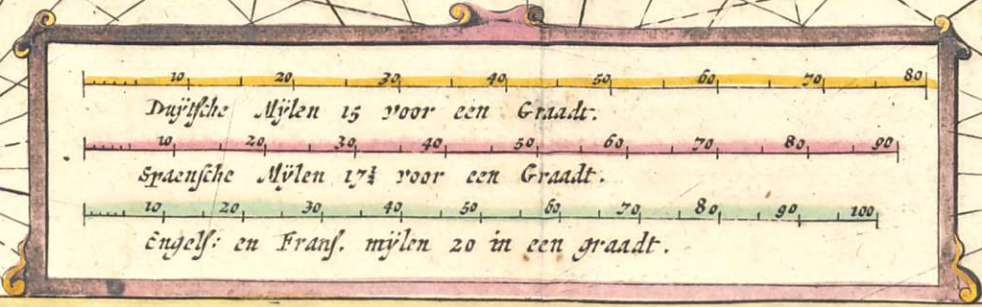 10 20 30 40 50 60 70 80
Duÿtsche Mÿlen 15 voor een Graadt.
10 20 30 40 50 60 70 80 90
Spaensche Mÿlen 17½ voor een Graadt.
10 20 30 40 50 60 70 80 90 100
Engels: en Frans. mÿlen 20 in een graadt.